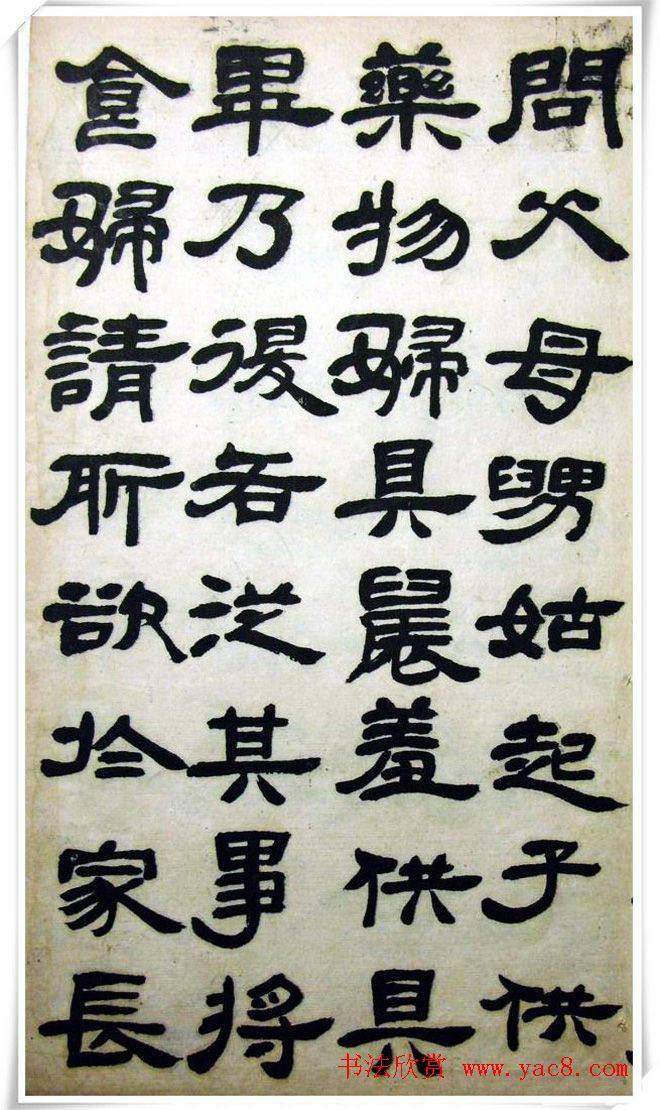 問父母舅姑起子供
藥物婦具晨羞供具
畢乃復各从其事將
食婦請所欲於家長
书法欣赏 www.yac8.com